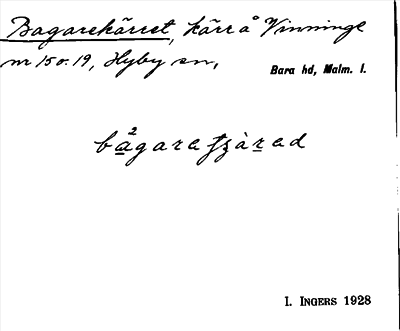 Bagarekärret, kärr å Vinninge
nr 15 o. 19, Hyby sn,
Bara hd, Malm. l.
I. INGERS 1928